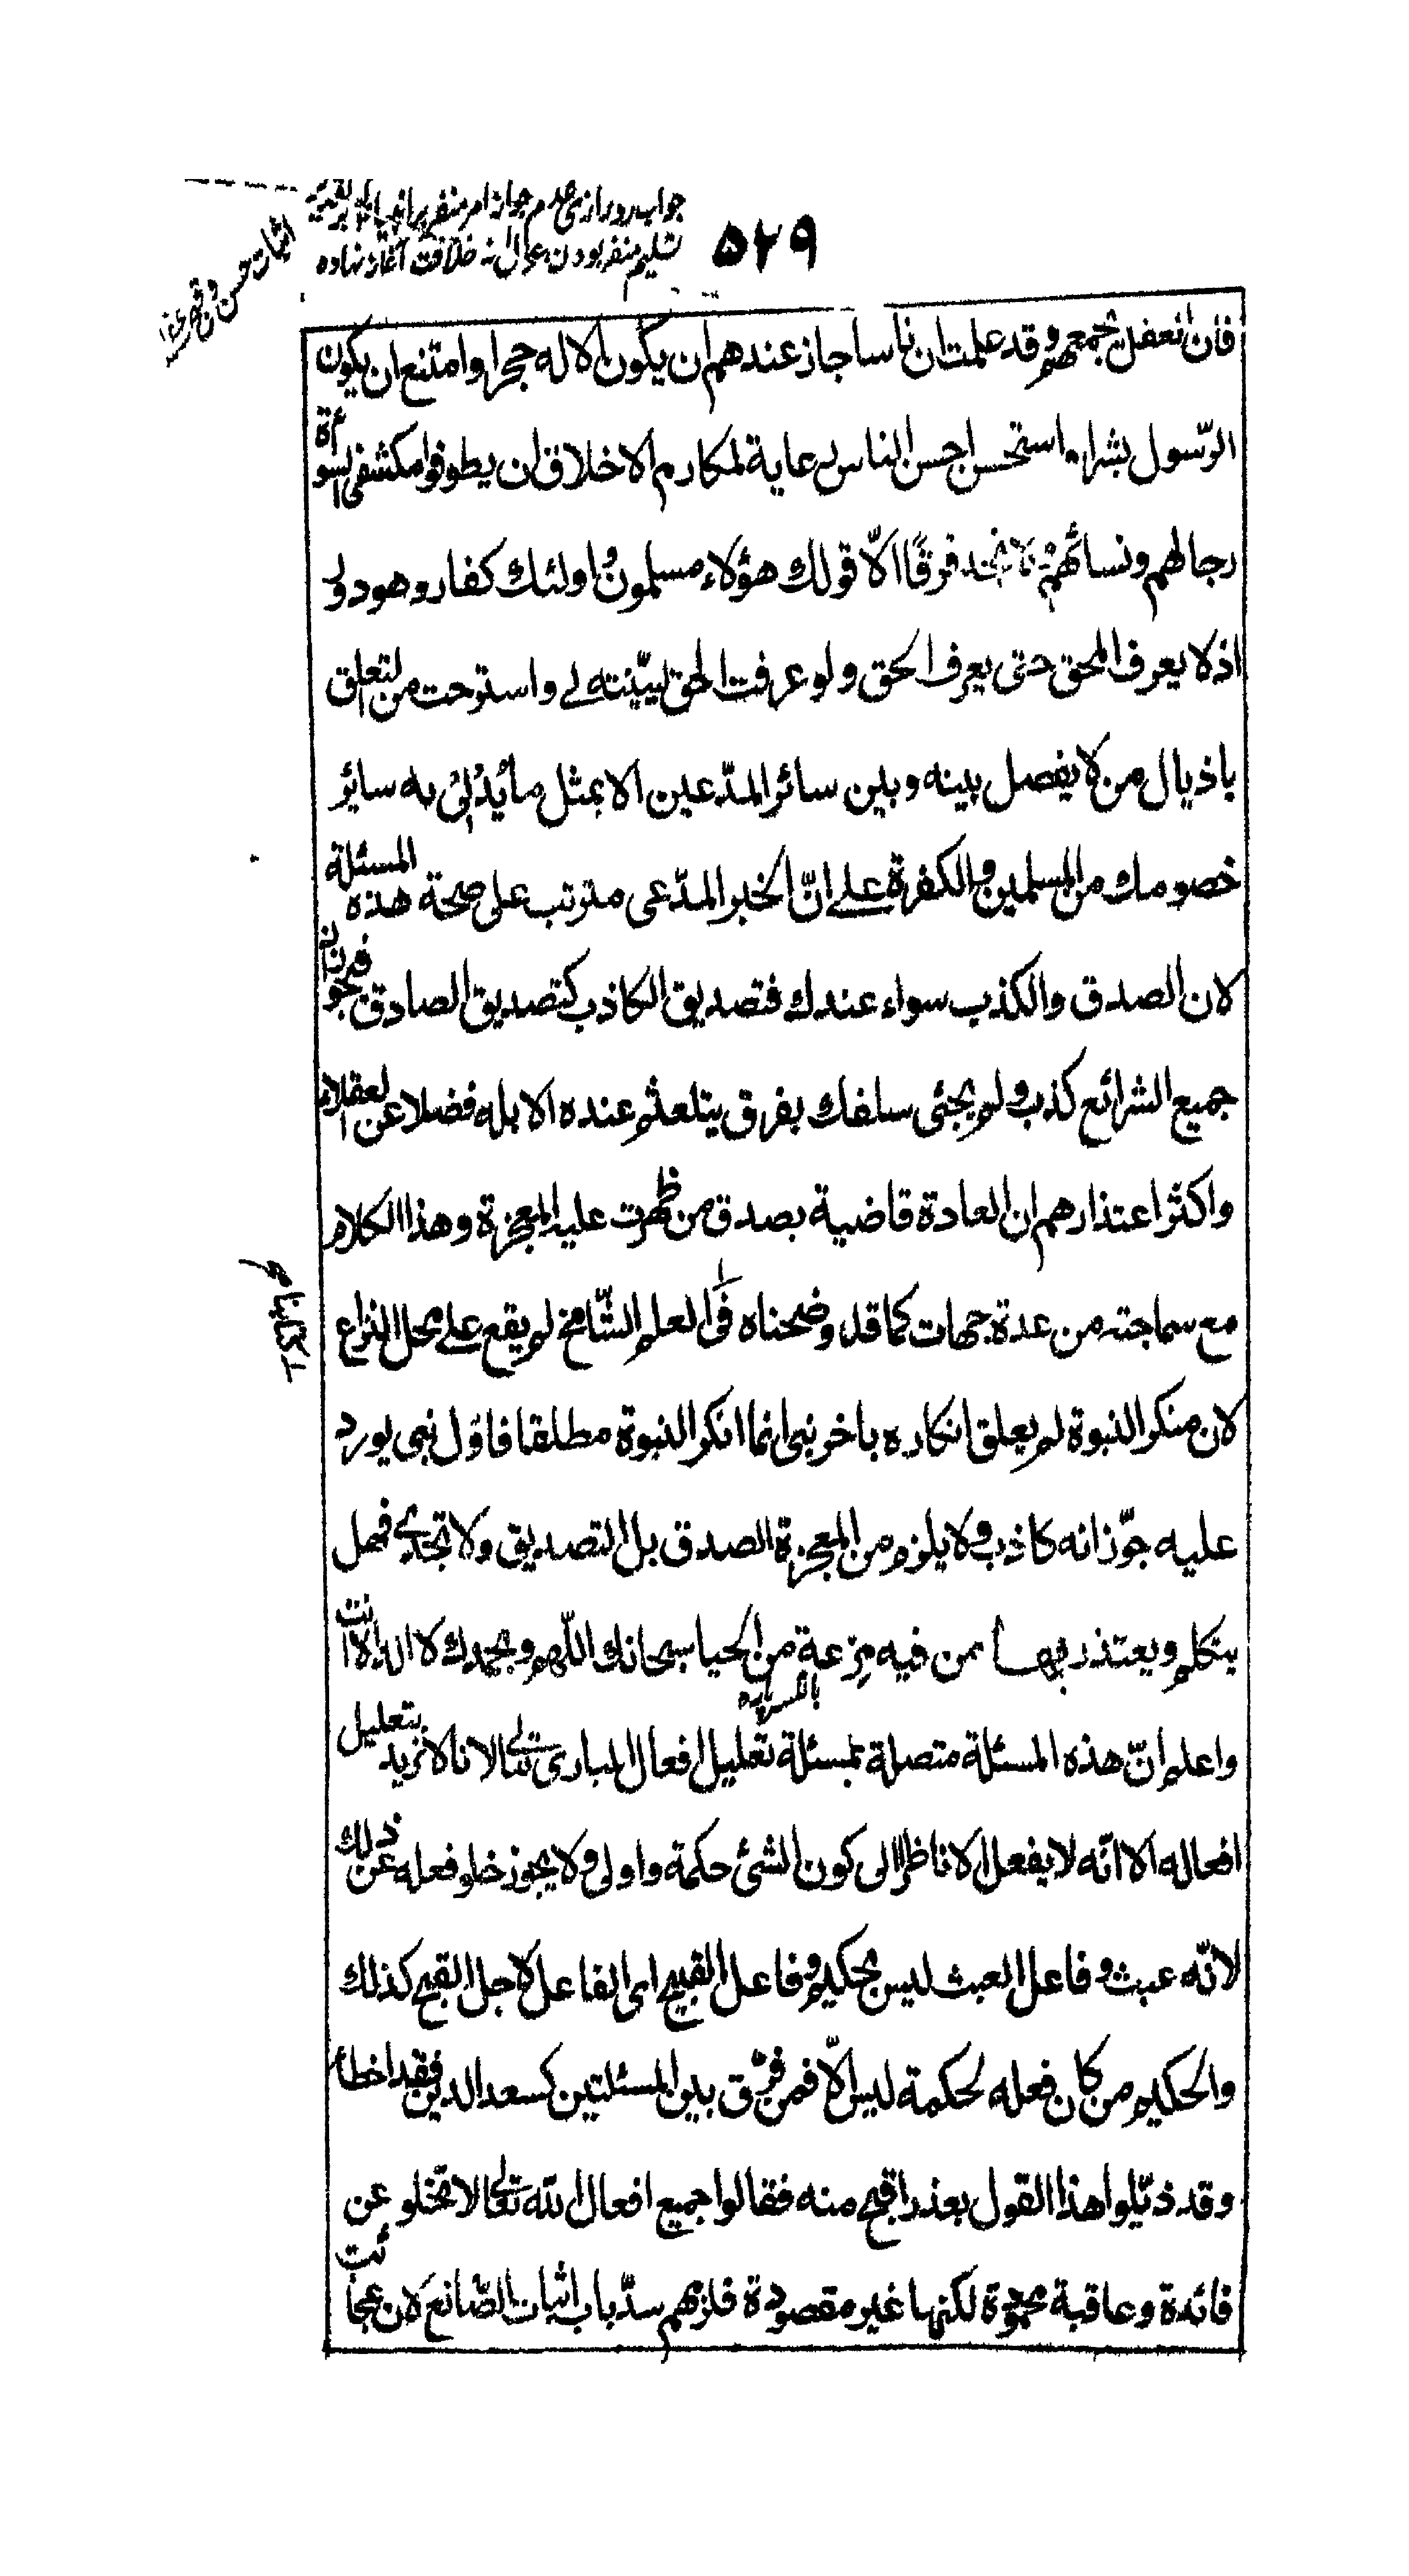 جواب رد رازی عدم جواز امر منفر بر انبیا
تسلیم منفر بودن خلافت آغاز نهاده
۵۲۹
اثبات حسن و قبح عقلی
فان انعقد يجمعهم وقد علمت ان ناسا جاز عندهم ان يكون الاله حجرا وامتنع ان يكون
الرّسول بشرا واستحسن احسن الناس رعاية لمكارم الاخلاق ان يطوفوا مكشفى السوأة
رجالهم ونسائهم لا تجد فرقًا الّا قولك هؤلاء مسلمون واولئك كفار وهو دورى
اذ لا يعرف المحق حتى يعرف الحق ولو عرفت الحق لبيّنته لى واسترحت من التعلق
باذيال من لا يفصل بينه وبين سائر المدّعين الا بمثل ما يُدْلِىْ به سائر
خصومك من المسلمين والكفرة على انّ الخبر المدّعى مترتب على صحة هذه المسئلة
لان الصدق والكذب سواء عندك فتصديق الكاذب كتصديق الصادق فجوز ان
جميع الشرائع كذب ولم يجئى سلفك بفرق يتلعثم عنده الابله فضلا عن العقلاء
واكثر اعتذارهم ان العادة قاضية بصدق من ظهرت عليه المعجزة وهذا الكلام
مع سماجته من عدة جهات كما قد وضحناه فى العلم الشّامخ لم يقع على محل النزاع
لان منكر النبوة لم يعلق انكاره باخر نبى انما انكر النبوة مطلقا فاوّل نبى يورد
عليه جوّز انه كاذب ولا يلزم من المعجزة الصدق بل التصديق ولا تجدى فهل
يتكلم ويعتذر بهما من فيه مزعة من الحيا سبحانك اللّهم وبحمدك لا اله الا انت
واعلم انّ هذه المسئلة متصلة بمسئلة تعليل افعال البارى تعالى لانا لا نريد بتعليل
افعاله الا انّه لا يفعل الا ناظرا الى كون الشئ حكمة واولى ولا يجوز خلو فعله عن ذلك
لانّه عبث وفاعل العبث ليس بحكيم وفاعل القبيح اى الفاعل لاجل القبح كذلك
والحكيم من كان فعله لحكمة ليس الّا فمن فرّق بين المسئلتين كسعد الدين فقد اخطأ
وقد ذيّلوا هذا القول بعذر اقبح منه فقالوا جميع افعال الله تعالى لا تخلو عن
فائدة وعاقبة محمودة لكنها غير مقصودة فلزمهم سدّ باب اثبات الصّانع لان عجائب